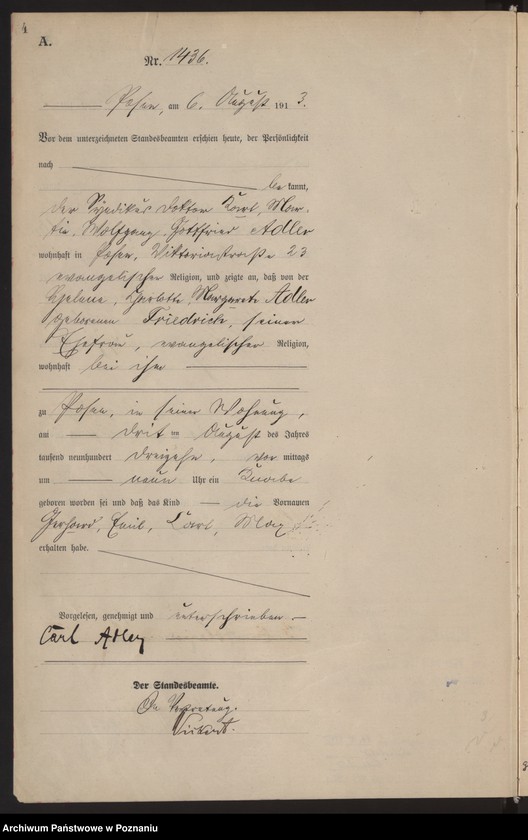 4
A.
Nr. 1436.
Posen, am 6. August 1913.
Vor dem unterzeichneten Standesbeamten erschien heute, der Persönlichkeit
nach
be kannt,
der Syndikus Doktor Karl, Mar-
tin, Wolfgang, Gottfried Adler
wohnhaft in Posen, Viktoriastraße 23
evangelischer Religion, und zeigte an, daß von der
Helene, Charlotte, Margarete Adler
geborenen Friedrich, seiner
Ehefrau, evangelischer Religion,
wohnhaft bei ihm
zu Posen, in seiner Wohnung,
am dritten August des Jahres
tausend neunhundert dreizehn, vor mittags
um neun Uhr ein Knabe
geboren worden sei und daß das Kind die Vornamen
Gerhard, Emil, Carl, Max
erhalten habe.
Vorgelesen, genehmigt und unterschrieben
Carl Adler
Der Standesbeamte.
In Vertretung.
Archiwum Państwowe w Poznaniu